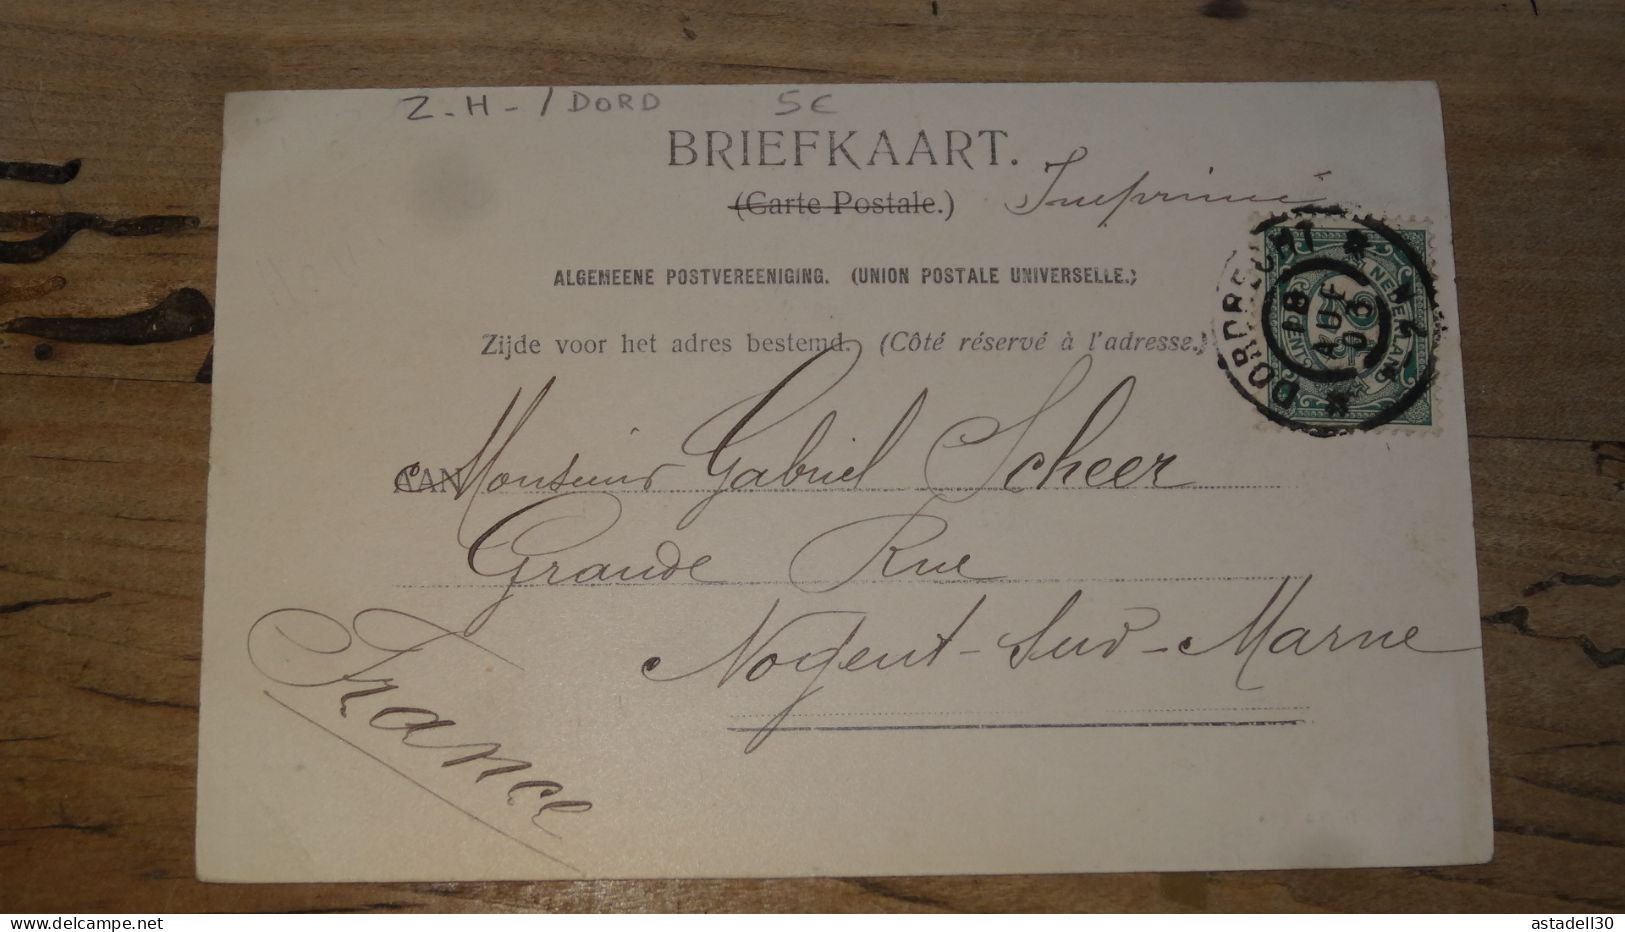 Z.H-/DORD 5€
BRIEFKAART.
(Carte Postale.) Imprimé
ALGEMEENE POSTVEREENIGING. (UNION POSTALE UNIVERSELLE.)
Zijde voor het adres bestemd. (Côté réservé à l'adresse.)
DORDRECHT
18 AUG 03
NEDERLAND
AAN Monsieur Gabriel Scheer
Grande Rue
Nogent-sur-Marne
France
delcampe.net
astadell30